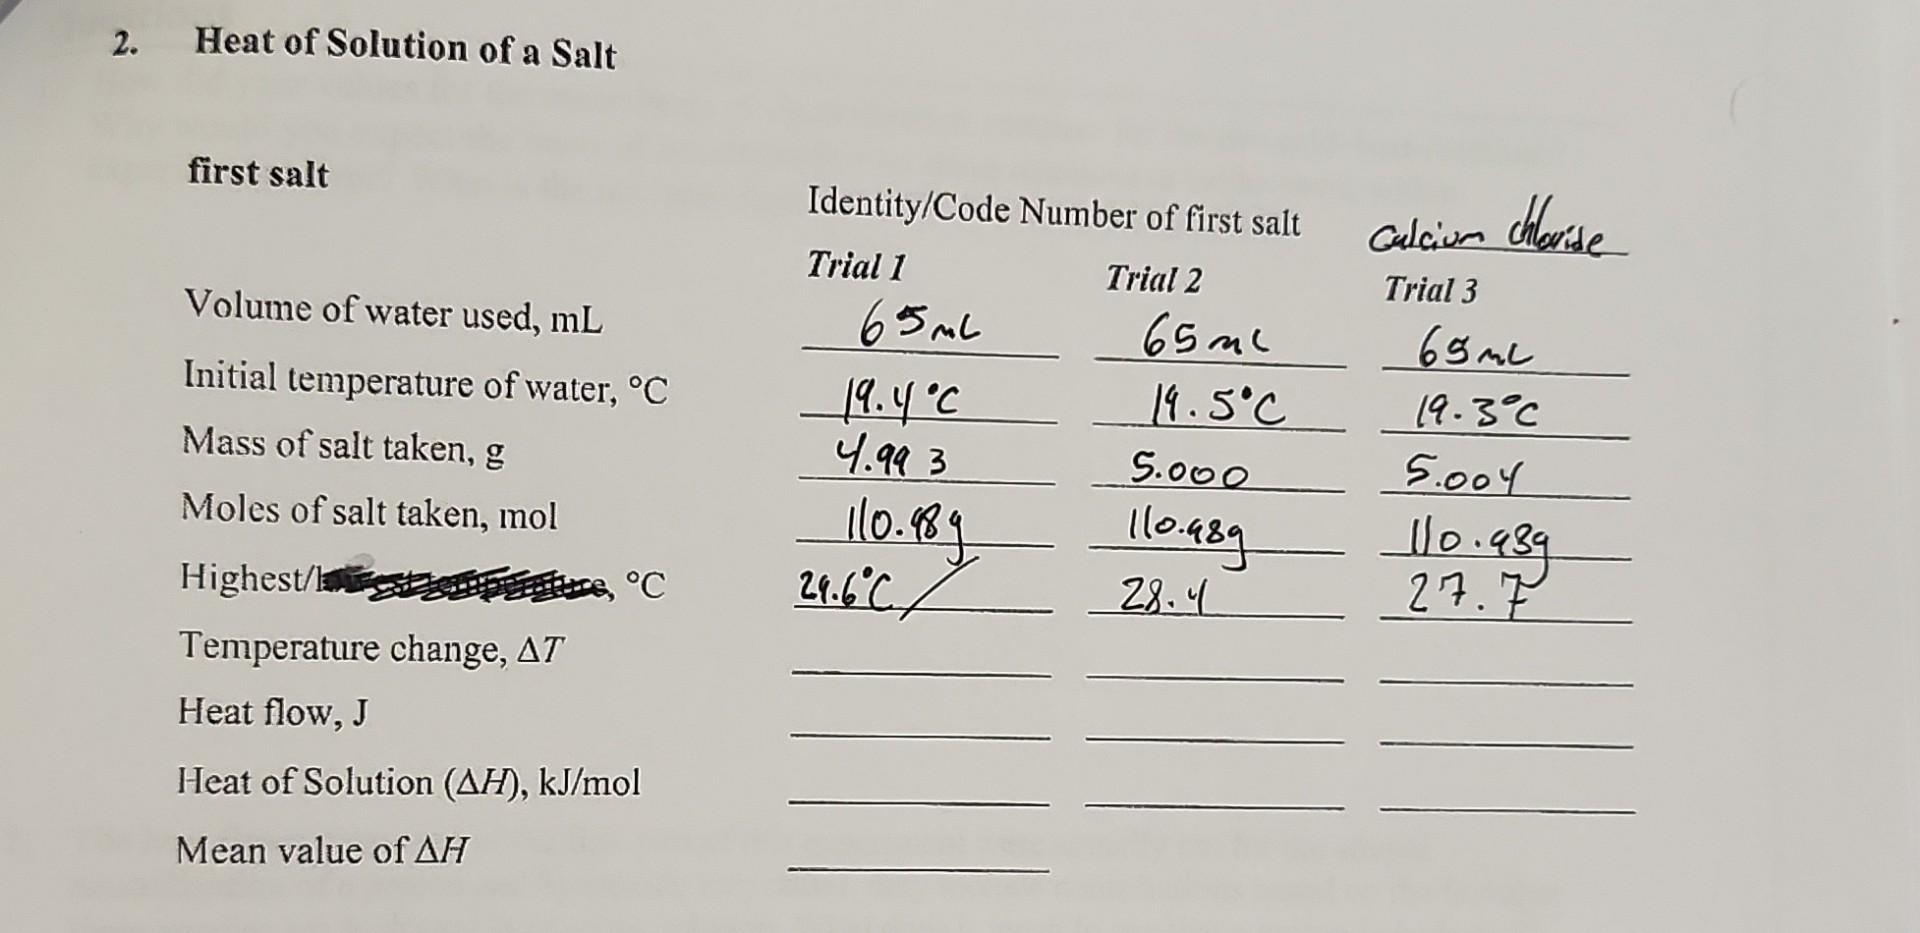 2. Heat of Solution of a Salt
first salt
Identity/Code Number of first salt Calcium chloride
Trial 1 Trial 2 Trial 3
Volume of water used, mL 65mL 65mL 65mL
Initial temperature of water, °C 19.4°C 19.5°C 19.3°C
Mass of salt taken, g 4.993 5.000 5.004
Moles of salt taken, mol 110.98g 110.98g 110.98g
Highest/ °C 29.6°C 28.4 27.7
Temperature change, ΔT
Heat flow, J
Heat of Solution (ΔH), kJ/mol
Mean value of ΔH